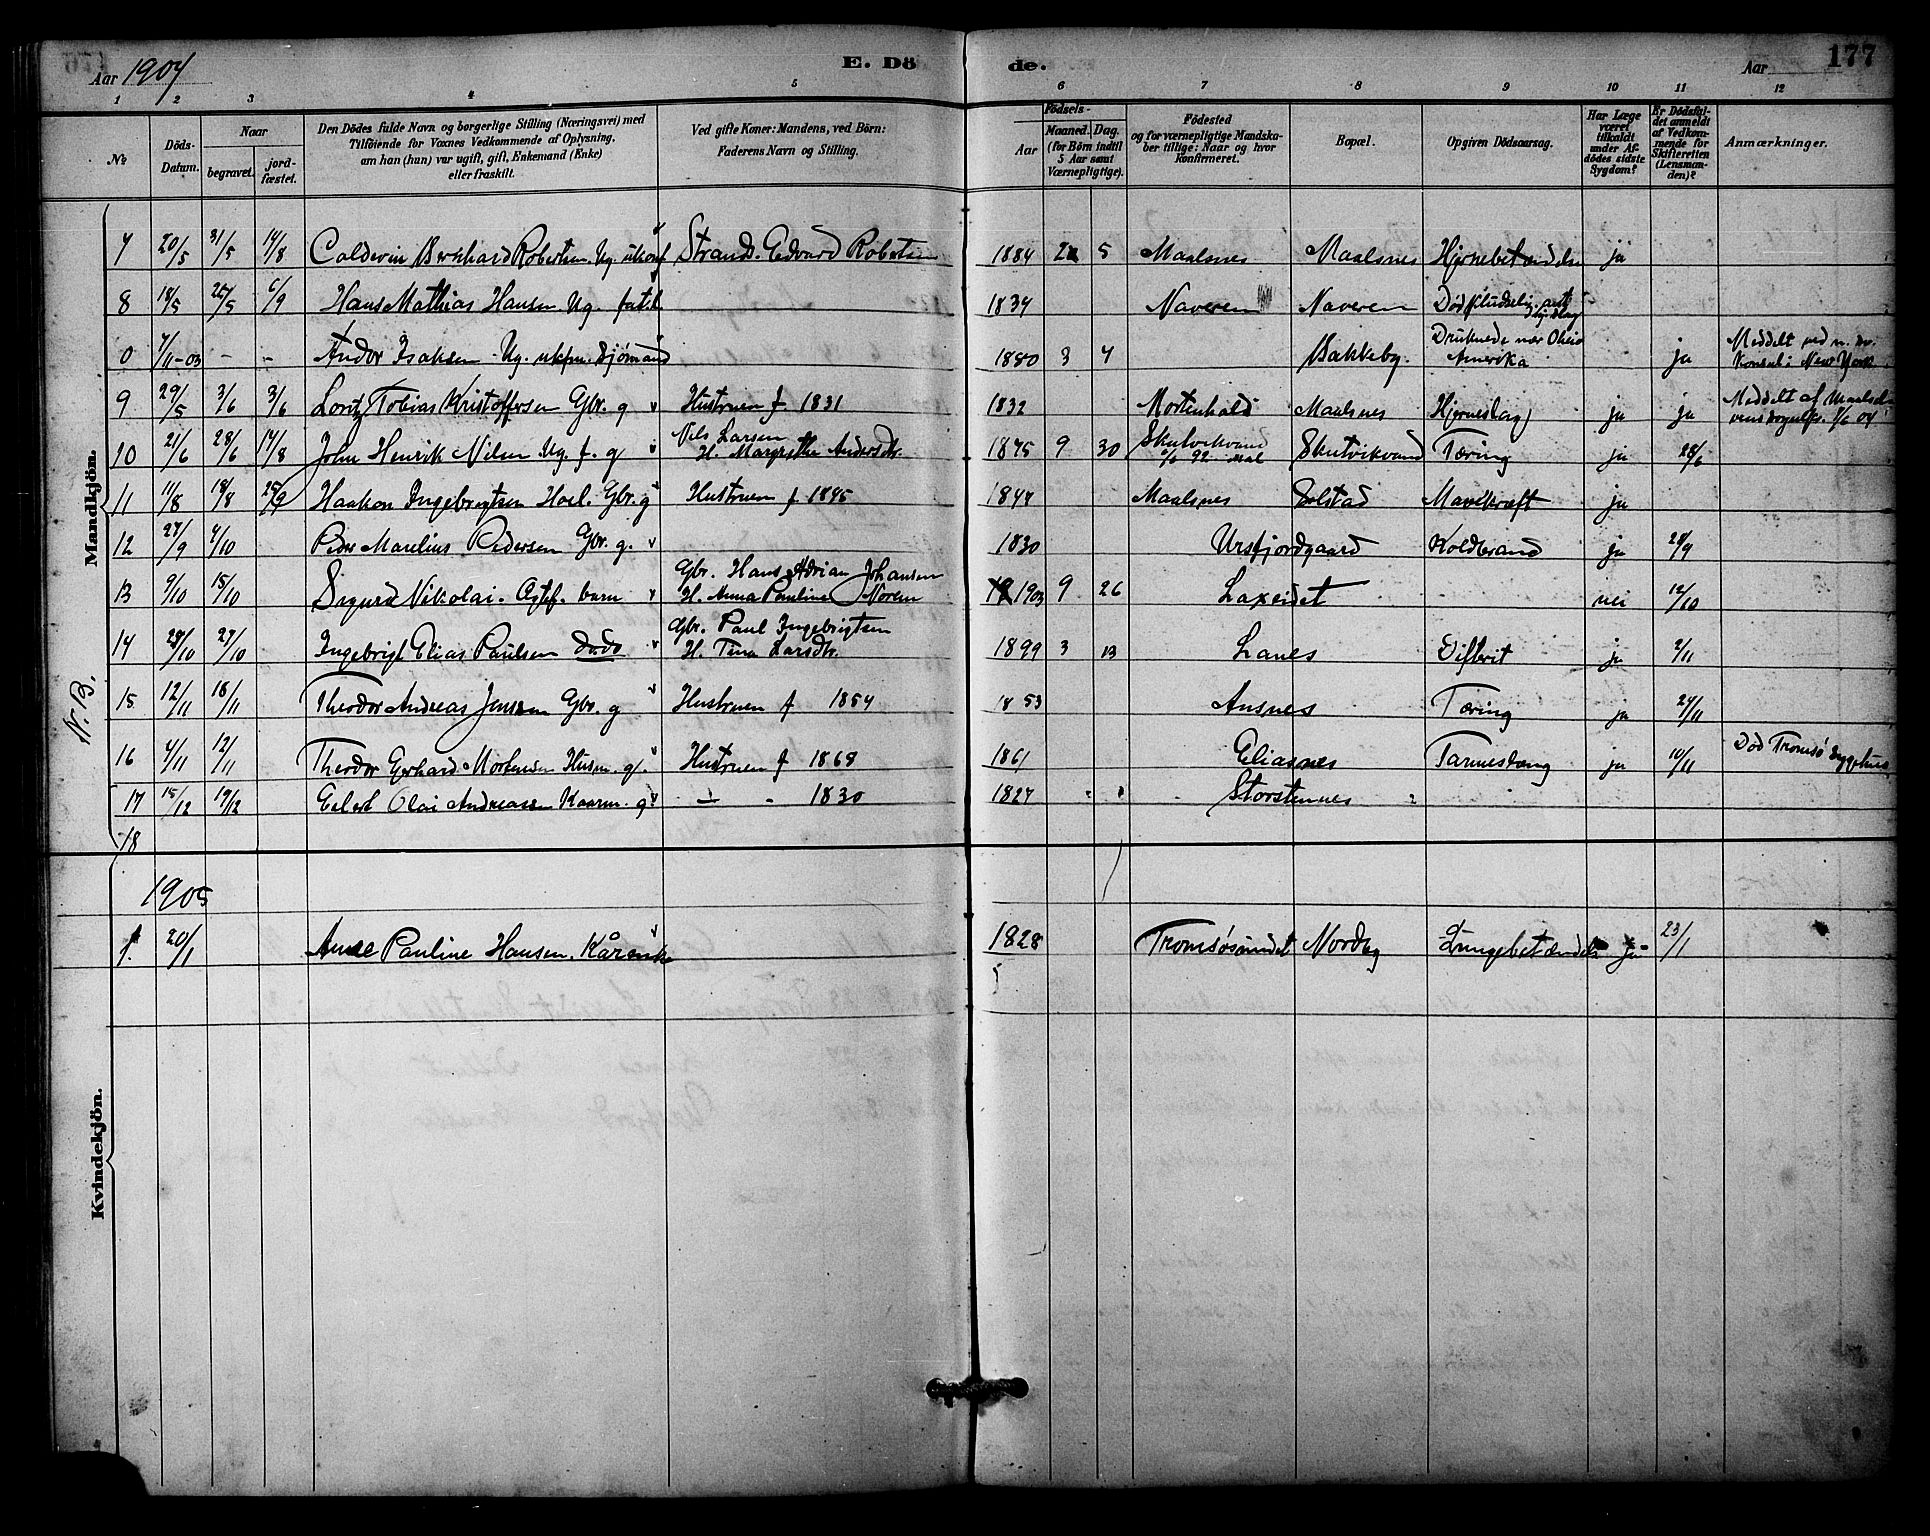 Aar 1904 E. Döde. Aar 177
1 2 3 4 5 6 7 8 9 10 11 12
№
Döds-Datum.
Naar
begravet.
jordfæstet.
Den Dödes fulde Navn og borgerlige Stilling (Næringsvei) med
Tilföiende for Voxnes Vedkommende af Oplysning,
om han (hun) var ugift, gift, Enkemand (Enke)
eller fraskilt.
Ved gifte Koner: Mandens, ved Börn:
Faderens Navn og Stilling.
Födsels-
Aar
Maaned. Dag.
(for Börn indtil
5 Aar samt
Værnepligtige).
Födested
og for værnepligtige Mandskaber tillige: Naar og hvor
konfirmeret.
Bopæl.
Opgiven Dödsaarsag.
Har Læge været tilkaldt under Afdödes sidste Sygdom?
Er Dödsfaldet anmeldt af Vedkommende for Skifteretten (Lensmanden)?
Anmærkninger.
Mandkjön.
7 20/5 31/5 14/8 Calderin Bernhard Robertsen Ug. ukonf Strands. Edvard Robertsen 1884 2 5 Maalsnes Maalsnes Hjernebetændelse ja
8 18/5 26/5 6/9 Hans Mathias Hansen Ug. fat.l. 1834 Naveren Naveren Død pludselig
0 7/11-03 - - Andor Isaksen - Ug. Sjømand 1880 3 4 Bakkeby. Druknede nær Ohio Amerika ja Meddelt ved n. sv. Konsul i New York
9 29/5 3/6 3/6 Lortz Tobias Kristoffersen Gbr. g Hustruen f. 1831 1832 Mortenhals Maalsnes Hjerneslag ja ja Meddelt af 1/6 04
10 21/6 28/6 14/8 John Henrik Nilsen Ug. f. g Nils Larsen H. Margrethe Andersdtr. 1875 9 30 Skutvikvand 92 Skutvikvand Tæring ja 28/6
11 11/8 18/8 25/9 Haakon Ingebrigtsen Hoel. Gbr. g Hustruen f 1845 1847 Maalsnes Solstad Mavekræft ja
12 27/9 4/10 Peder Marelius Pedersen Gbr. g. 1830 Ursfjordgaard Koldbrand ja 28/9
13 9/10 15/10 Sigurd Nikolai. Ægtef. barn Gbr. Hans Adrian Johansen H. Anna Pauline Noren 1903 9 26 Laxeidet nei 12/10
14 28/10 27/10 Ingebrigt Elias Paulsen dodo Gbr. Paul Ingebrigtsen H. Tina Larsdtr. 1899 3 13 Lanes Difterit ja 2/11
N. B.
15 12/11 18/11 Theodor Andreas Jensen Gbr. g Hustruen f 1854 1853 Ansnes Tæring ja 24/11
16 4/11 12/11 Theodor Gerhard Mortensen Husm. g. Hustruen f 1868 1861 Eliasnes Tarmeslæng ja 10/11 Død Tromsø sygehus
17 15/12 19/12 Eilert Olai Andreassen Kaarm. g - " 1830 1827 " " Storstennes
18
Kvindekjön.
1905
1. 20/1 Anne Pauline Hansen. Kårenke 1828 Tromsøsundet Nordby Lungebetændelse ja 23/1